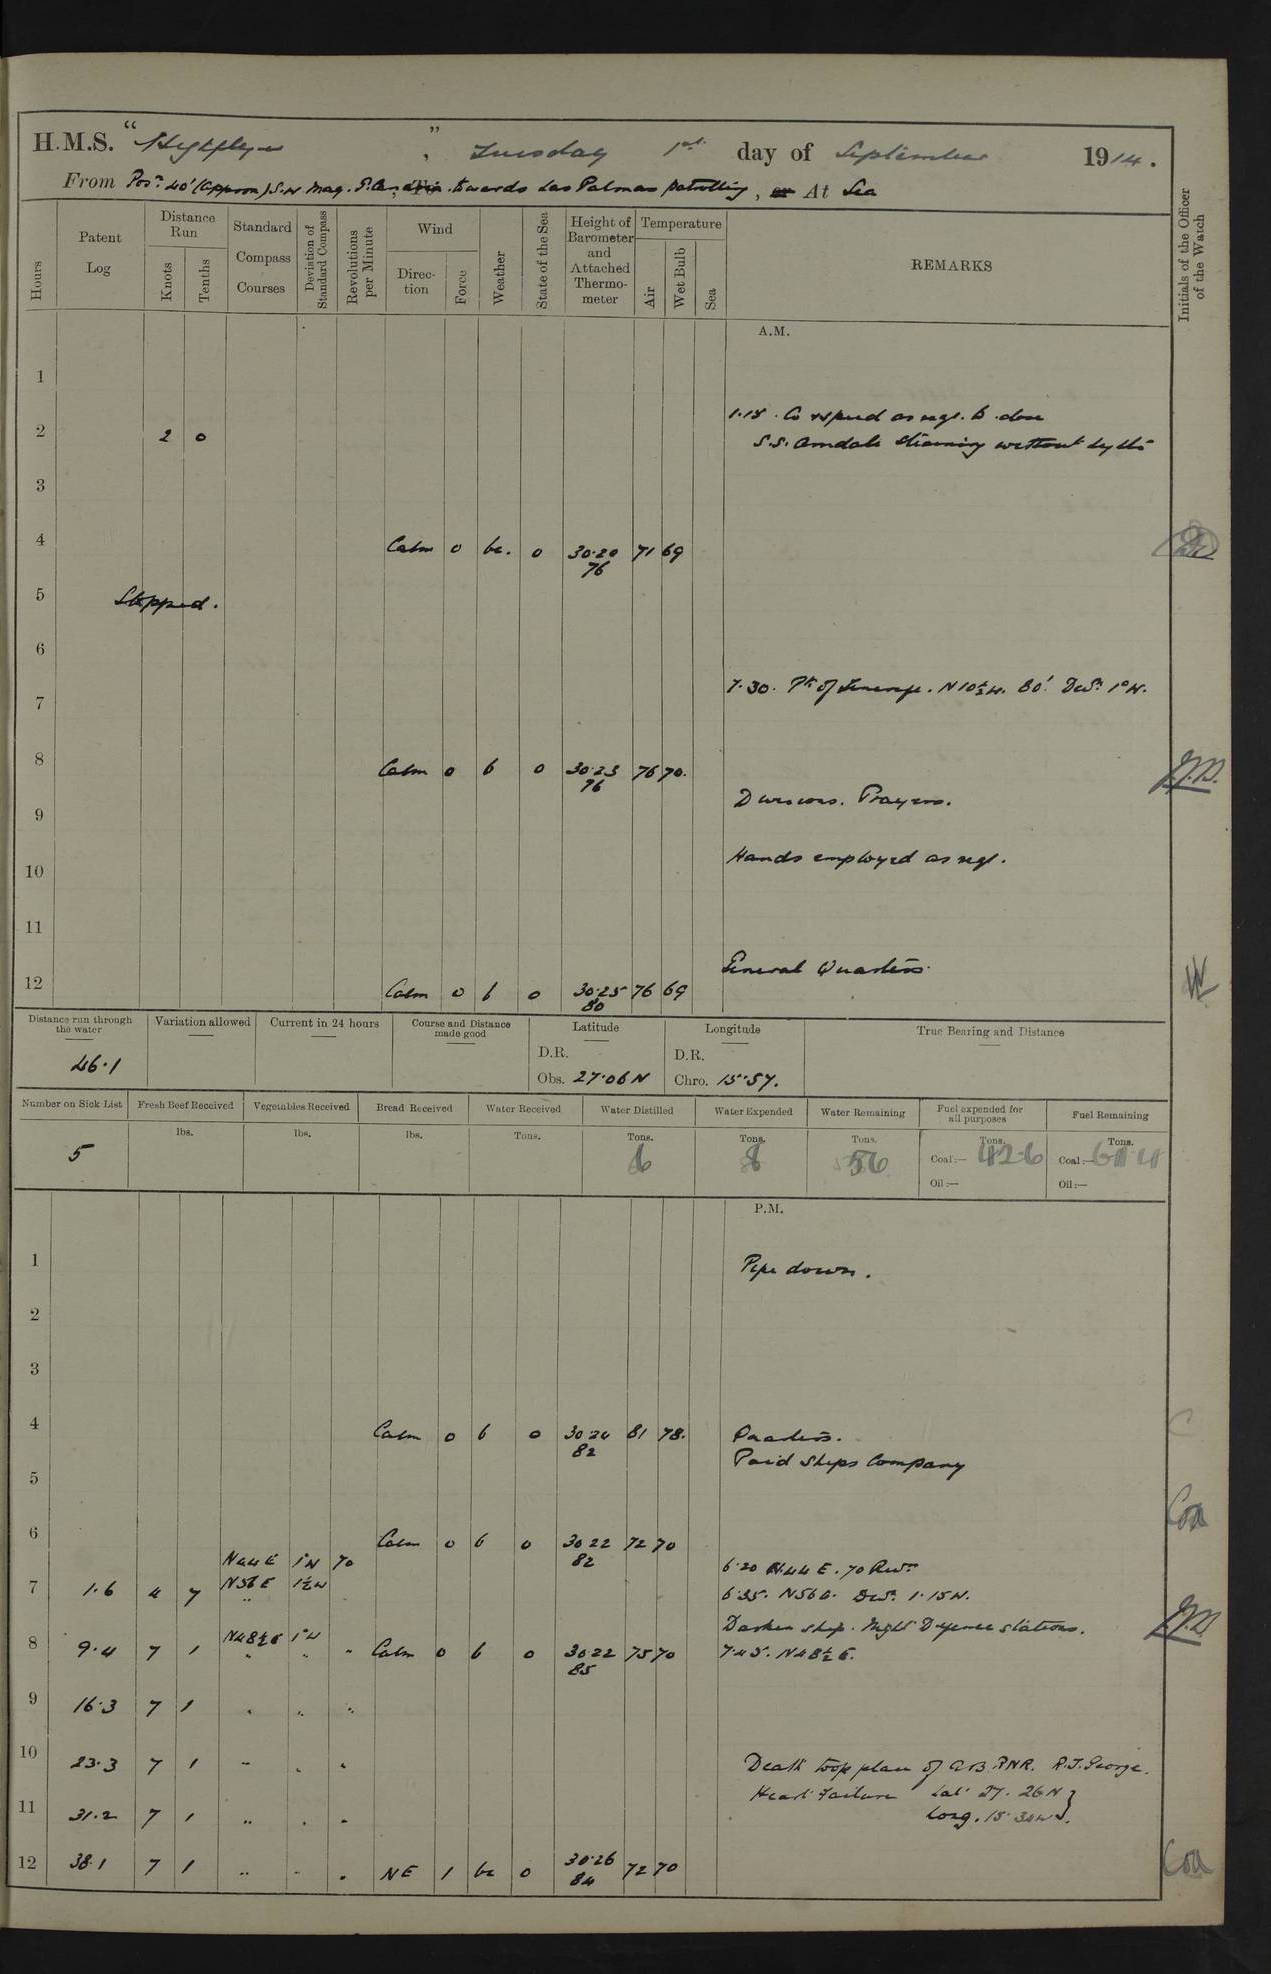 H.M.S. "Highflyer", Tuesday 1st day of September 1914.
From Posn. 40' (approx) S.W. Mag. towards Las Palmas patrolling, or At Sea
Hours
Patent Log
Distance Run
Knots
Tenths
Standard Compass Courses
Deviation of Standard Compass
Revolutions per Minute
Wind
Direction
Force
Weather
State of the Sea
Height of Barometer and Attached Thermometer
Temperature
Air
Wet Bulb
Sea
REMARKS
Initials of the Officer of the Watch
A.M.
1
1.18. Co & speed as req. to close
2 2 0
S.S. Arndale steaming without lights
3
4 Calm 0 bc. 0 30.20 71 69
76
5 Stopped.
6
7.30. Pk of Teneriffe. N10½W. 80'. Devn. 1°W.
7
8 Calm 0 b 0 30.23 76 70.
76
J.B.
Divisions. Prayers.
9
Hands employed as req.
10
11
General Quarters.
12 Calm 0 b 0 30.25 76 69
80
Distance run through the water
46.1
Variation allowed
Current in 24 hours
Course and Distance made good
Latitude
D.R.
Obs. 27.06 N
Longitude
D.R.
Chro. 15.57.
True Bearing and Distance
Number on Sick List
5
Fresh Beef Received
lbs.
Vegetables Received
lbs.
Bread Received
lbs.
Water Received
Tons.
Water Distilled
Tons.
6
Water Expended
Tons.
8
Water Remaining
Tons.
56
Fuel expended for all purposes
Tons.
Coal:— 42.6
Oil:—
Fuel Remaining
Tons.
Coal:—
Oil:—
P.M.
1 Pipe down.
2
3
4 Calm 0 b 0 30 24 81 78. Quarters.
82
Paid Ships Company
5
6 Calm 0 b 0 30 22 72 70
82
N44E 1°W 70
6.20 N.44 E. 70 Revs
7 1.6 4 7 N56E 1½W
6.35. N56E. Devn. 1.15W.
Darken ship. Night Defence stations.
N48½E 1°W
8 9.4 7 1 " " " Calm 0 b 0 30.22 75 70 7.45. N48½E.
85
J.B.
9 16.3 7 1 " " "
10 23.3 7 1 " " " Death took place of A.B. RNR. R.J. George.
Heart Failure Lat 27. 26N
11 31.2 7 1 " " " Long. 15 34W.
12 38.1 7 1 " " " NE 1 bc 0 30.26 72 70
84